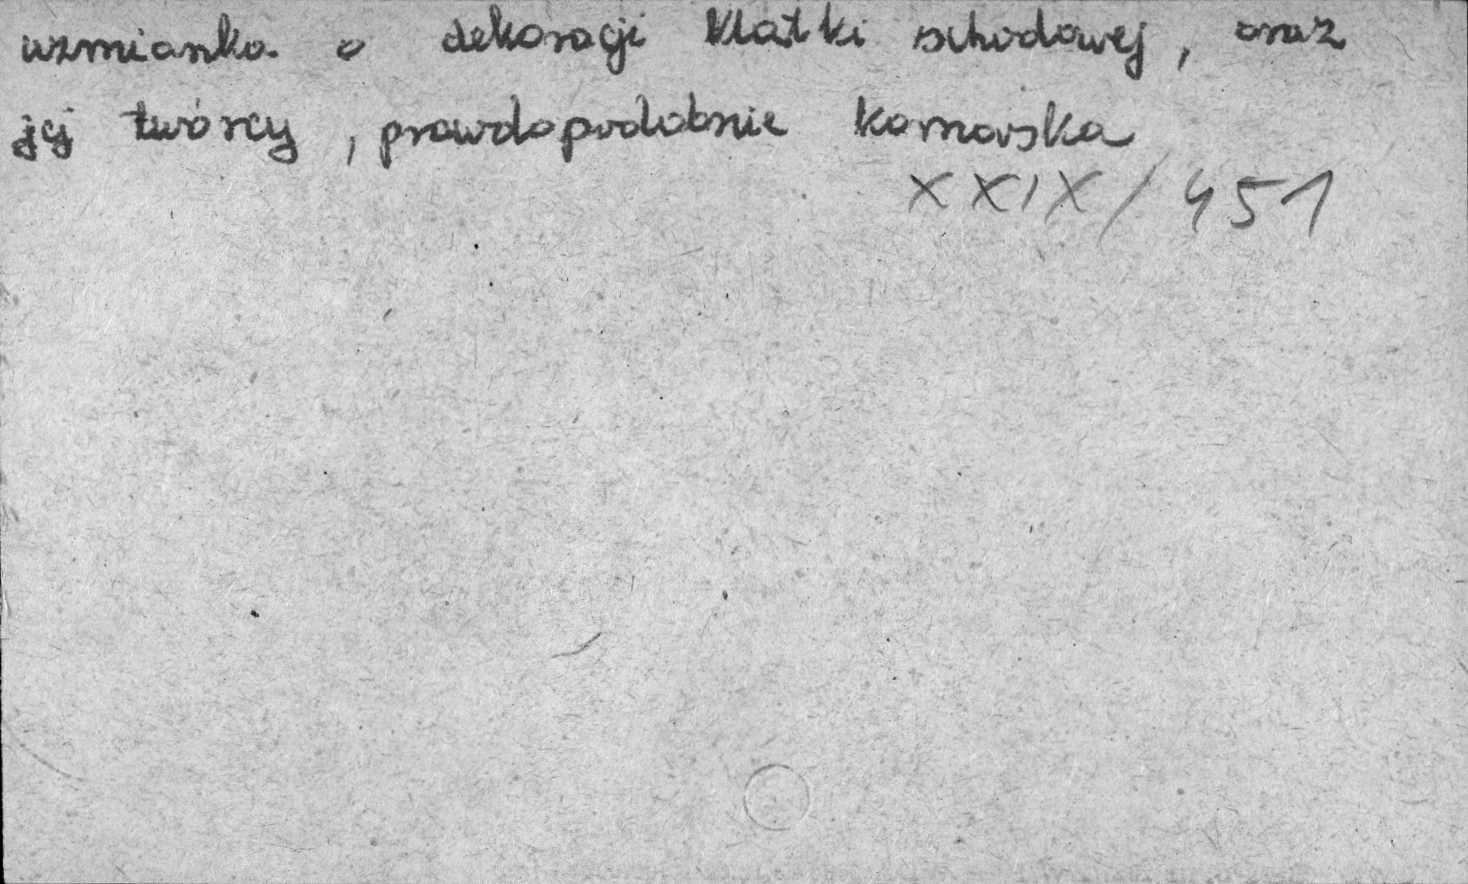 wzmianka o dekoracji klatki schodowej, oraz
jej twórcy, prawdopodobnie Komorska
XXIX/451